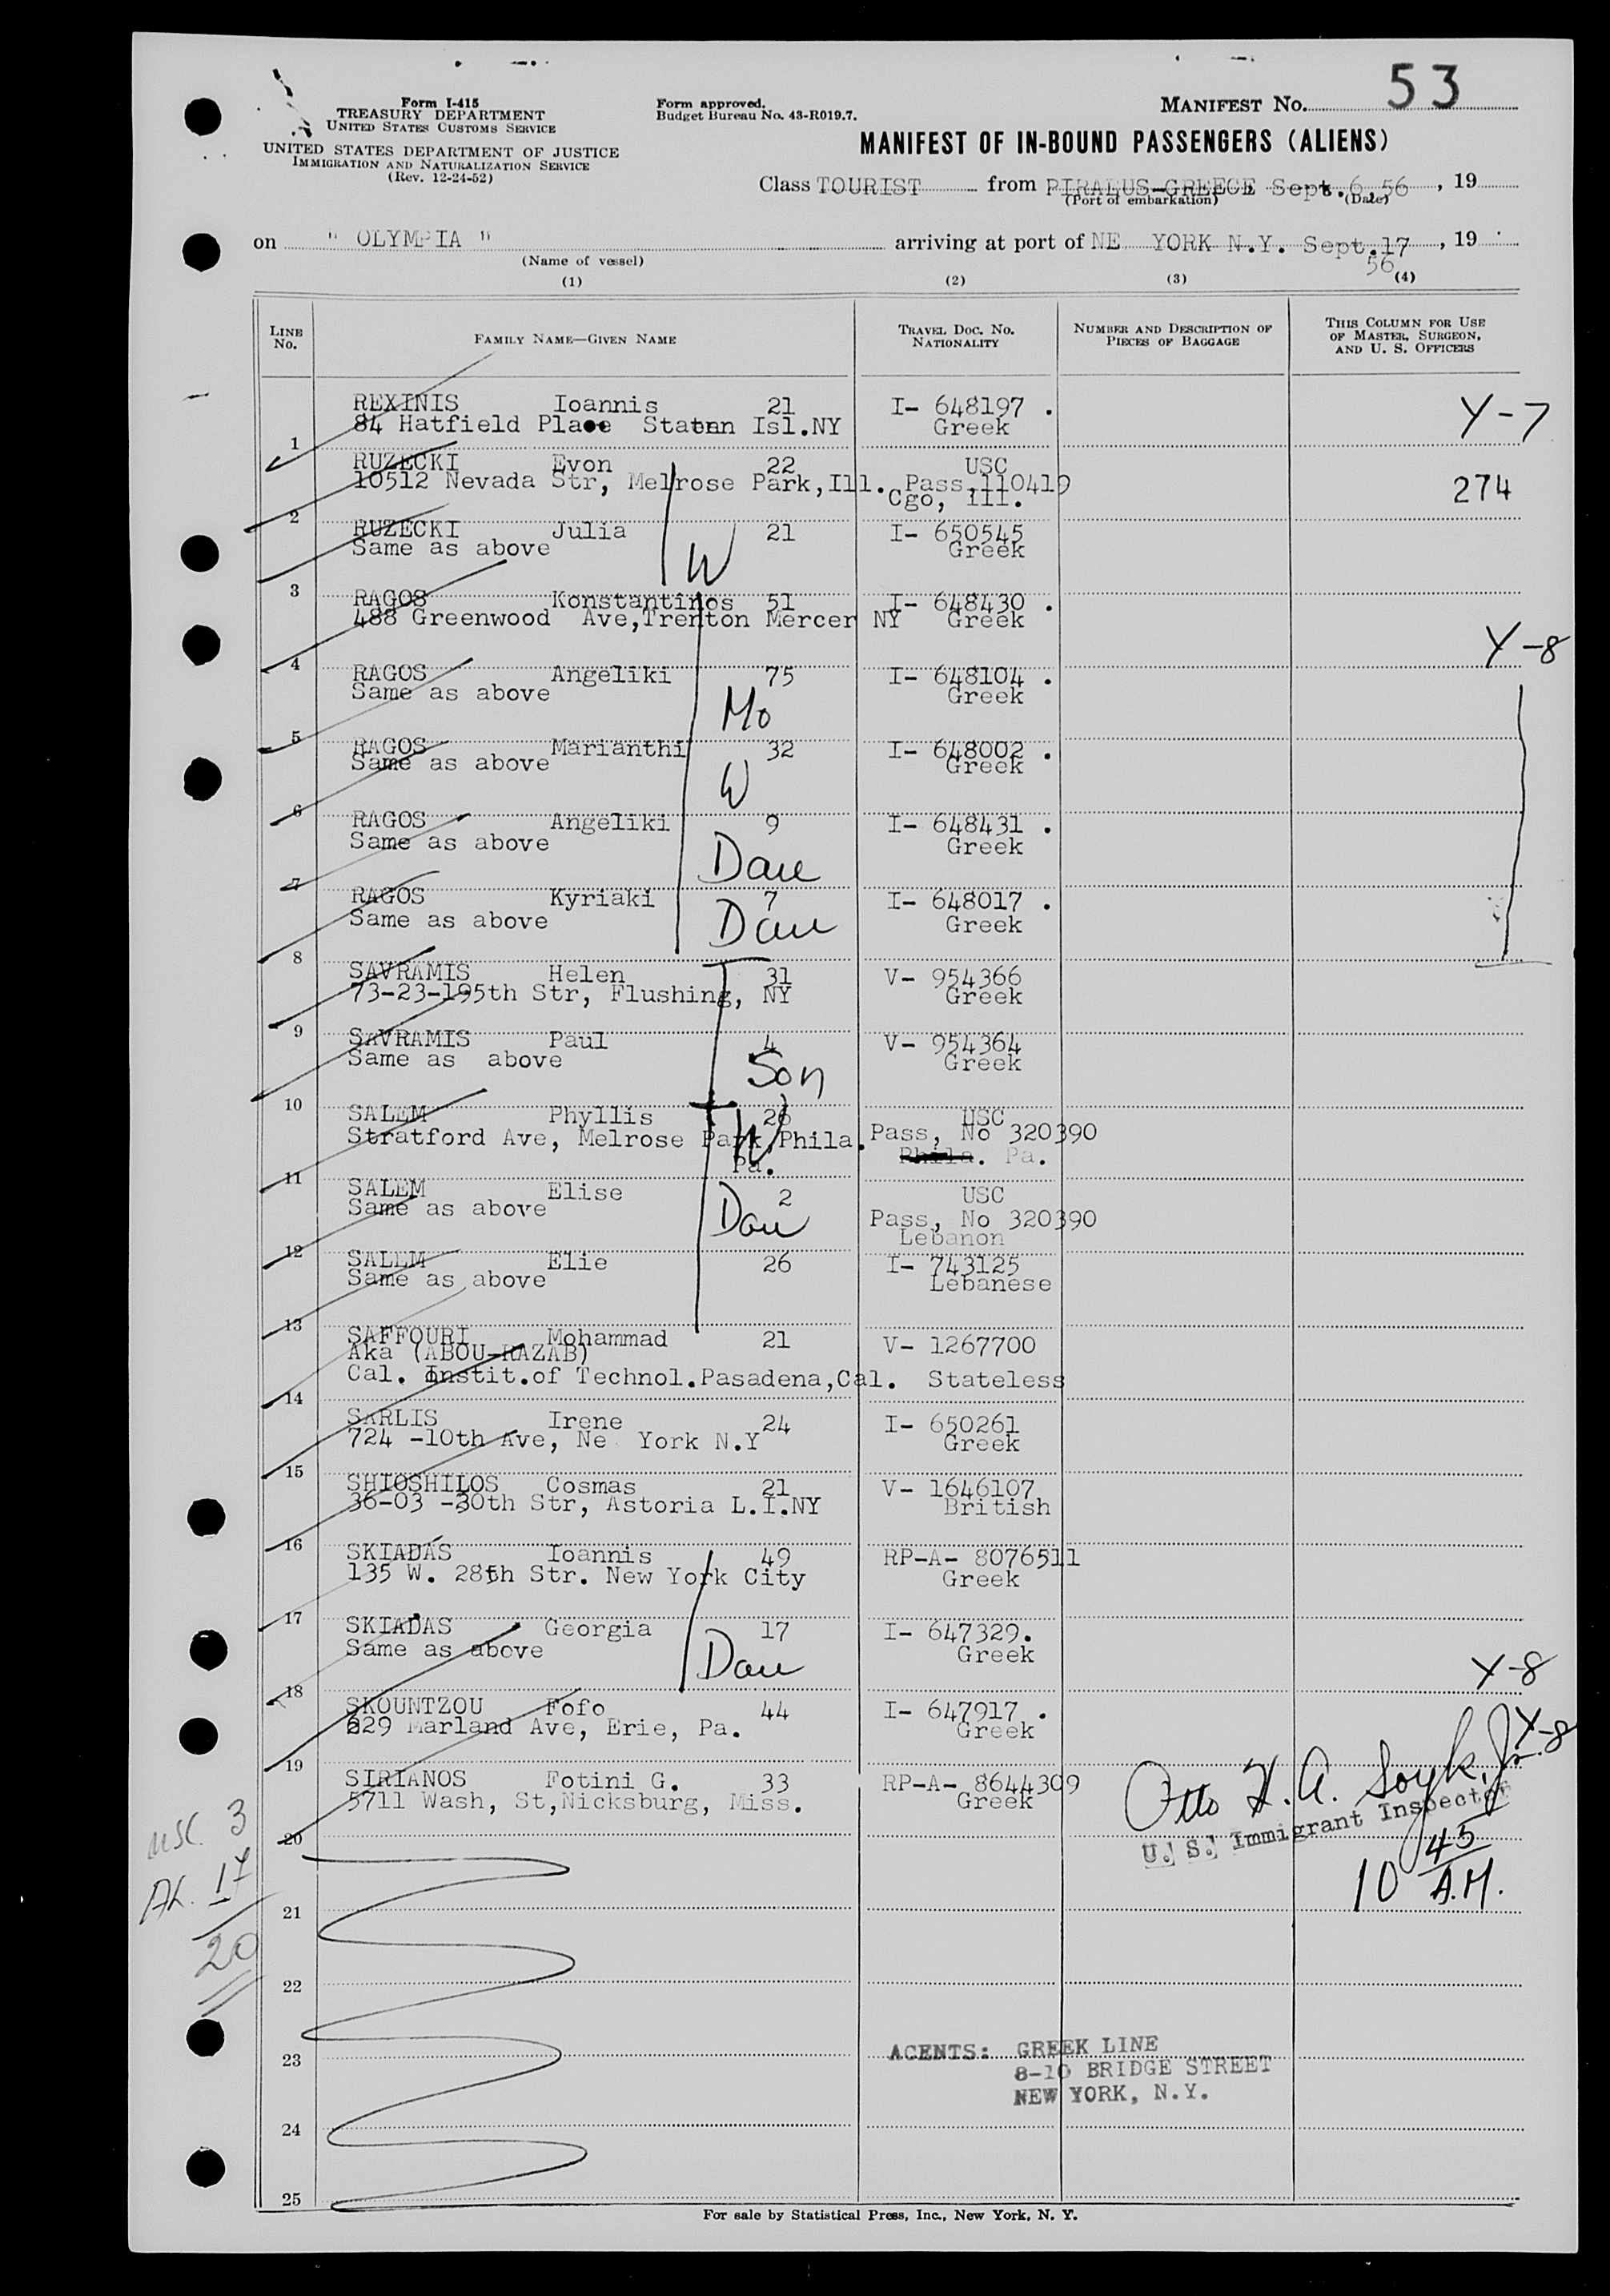 53
Form I-415
TREASURY DEPARTMENT
UNITED STATES CUSTOMS SERVICE
UNITED STATES DEPARTMENT OF JUSTICE
IMMIGRATION AND NATURALIZATION SERVICE
(Rev. 12-24-52)
Form approved.
Budget Bureau No. 43-R019.7.
MANIFEST NO.
MANIFEST OF IN-BOUND PASSENGERS (ALIENS)
Class TOURIST from PIRAEUS-GREECE Sept.6,56, 19
(Port of embarkation) (Date)
on " OLYMPIA " arriving at port of NE YORK N.Y. Sept.17, 19
56
(Name of vessel)
(1) (2) (3) (4)
LINE No. FAMILY NAME—GIVEN NAME TRAVEL DOC. NO. NATIONALITY NUMBER AND DESCRIPTION OF PIECES OF BAGGAGE THIS COLUMN FOR USE OF MASTER, SURGEON, AND U. S. OFFICERS
REXINIS Ioannis 21 I- 648197 . Y-7
84 Hatfield Place Staten Isl.NY Greek
1
RUZECKI Evon 22 USC
10512 Nevada Str, Melrose Park,Ill. Pass.110419 274
Cgo, Ill.
2
RUZECKI Julia 21 I- 650545
Same as above W Greek
3
RAGOS Konstantinos 51 I- 648430 .
488 Greenwood Ave,Trenton Mercer NY Greek
Y-8
4
RAGOS Angeliki 75 I- 648104 .
Same as above Mo Greek
5
RAGOS Marianthi 32 I- 648002 .
Same as above W Greek
6
RAGOS Angeliki 9 I- 648431 .
Same as above Dau Greek
7
RAGOS Kyriaki 7 I- 648017 .
Same as above Dau Greek
8
SAVRAMIS Helen 31 V- 954366
73-23-195th Str, Flushing, NY Greek
9
SAVRAMIS Paul 4 V- 954364
Same as above Son Greek
10
SALEM Phyllis 26 USC
Stratford Ave, Melrose Park Phila. Pass, No 320390
W Pa. Phila. Pa.
11
SALEM Elise 2 USC
Same as above Dau Pass, No 320390
Lebanon
12
SALEM Elie 26 I- 743125
Same as above Lebanese
13
SAFFOURI Mohammad 21 V- 1267700
Aka (ABOU-RAZAB)
Cal. Instit.of Technol.Pasadena,Cal. Stateless
14
SARLIS Irene 24 I- 650261
724 -10th Ave, Ne York N.Y Greek
15
SHIOSHILOS Cosmas 21 V- 1646107
36-03 -30th Str, Astoria L.I.NY British
16
SKIADAS Ioannis 49 RP-A- 8076511
135 W. 28th Str. New York City Greek
17
SKIADAS Georgia 17 I- 647329.
Same as above Dau Greek
Y-8
18
SKOUNTZOU Fofo 44 I- 647917 .
629 Marland Ave, Erie, Pa. Greek
Y-8
19
SIRIANOS Fotini G. 33 RP-A- 8644309
5711 Wash, St,Nicksburg, Miss. Greek
Otto H. A. Soyk, Jr.
U. S. Immigrant Inspector
20
10 45 A.M.
USC. 3
AL. 17
20
21
22
23
AGENTS: GREEK LINE
8-10 BRIDGE STREET
NEW YORK, N.Y.
24
25
For sale by Statistical Press, Inc., New York, N. Y.